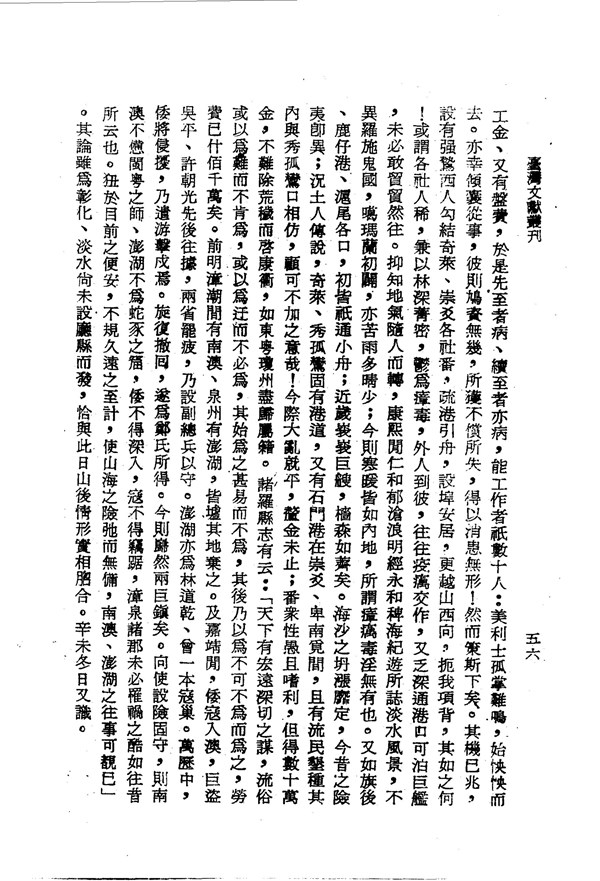 臺灣文獻叢刊
五六
工金、又有盤費，於是先至者病、續至者亦病，能工作者祇數十人：美利士孤掌難鳴，始怏怏而
去。亦幸傾囊從事，彼則鳩資無幾，所獲不償所失，得以消患無形！然而策斯下矣。其機已兆，
設有强鷙西人勾結奇萊、崇爻各社番，疏港引舟，設埠安居，更越山西向，扼我項背，其如之何
！或謂各社人稀，兼以林深菁密，鬱爲瘴毒，外人到彼，往往疫癘交作，又乏深通港口可泊巨艦
，未必敢貿貿然往。抑知地氣隨人而轉，康熙閒仁和郁滄浪明經永和稗海紀遊所誌淡水風景，不
異羅施鬼國，噶瑪蘭初闢，亦苦雨多晴少；今則寒暖皆如內地，所謂瘴癘毒淫無有也。又如旗後
、鹿仔港、滬尾各口，初皆祇通小舟；近歲裝裝巨艘，檣森如薺矣。海沙之坍漲靡定，今昔之險
夷卽異；況土人傳說，奇萊、秀孤鸞固有港道，又有石門港在崇爻、卑南覓間，且有流民墾種其
內與秀孤鸞口相仿，顧可不加之意哉！今際大亂就平，釐金未止；番衆性愚且嗜利，但得數十萬
金，不難除荒穢而啓康衢，如東粤瓊州盡歸鴈籍。諸羅縣志有云：「天下有宏遠深切之謀，流俗
或以爲難而不肯爲，或以爲迂而不必爲，其始爲之甚易而不爲，其後乃以爲不可不爲而爲之，勞
費已什佰千萬矣。前明漳潮間有南澳、泉州有澎湖，皆墟其地棄之。及嘉靖閒，倭寇入澳，巨盜
吳平、許朝光先後往據，兩省罷疲，乃設副總兵以守。澎湖亦爲林道乾、曾一本寇巢。萬歷中，
倭將侵擾，乃遣游擊戍焉。旋復撤囘，遂爲鄭氏所得。今則屹然兩巨鎭矣。向使設險固守，則南
澳不憊閩粤之師、澎湖不爲蛇豕之窟，倭不得深入，寇不得竊踞，漳泉諸郡未必罹禍之酷如往昔
所云也。狃於目前之便安，不規久遠之至計，使山海之險弛而無備，南澳、澎湖之往事可覩已」
。其論雖爲彰化、淡水尙未設廳縣而發，恰與此日山後情形實相脗合。辛未冬日又識。